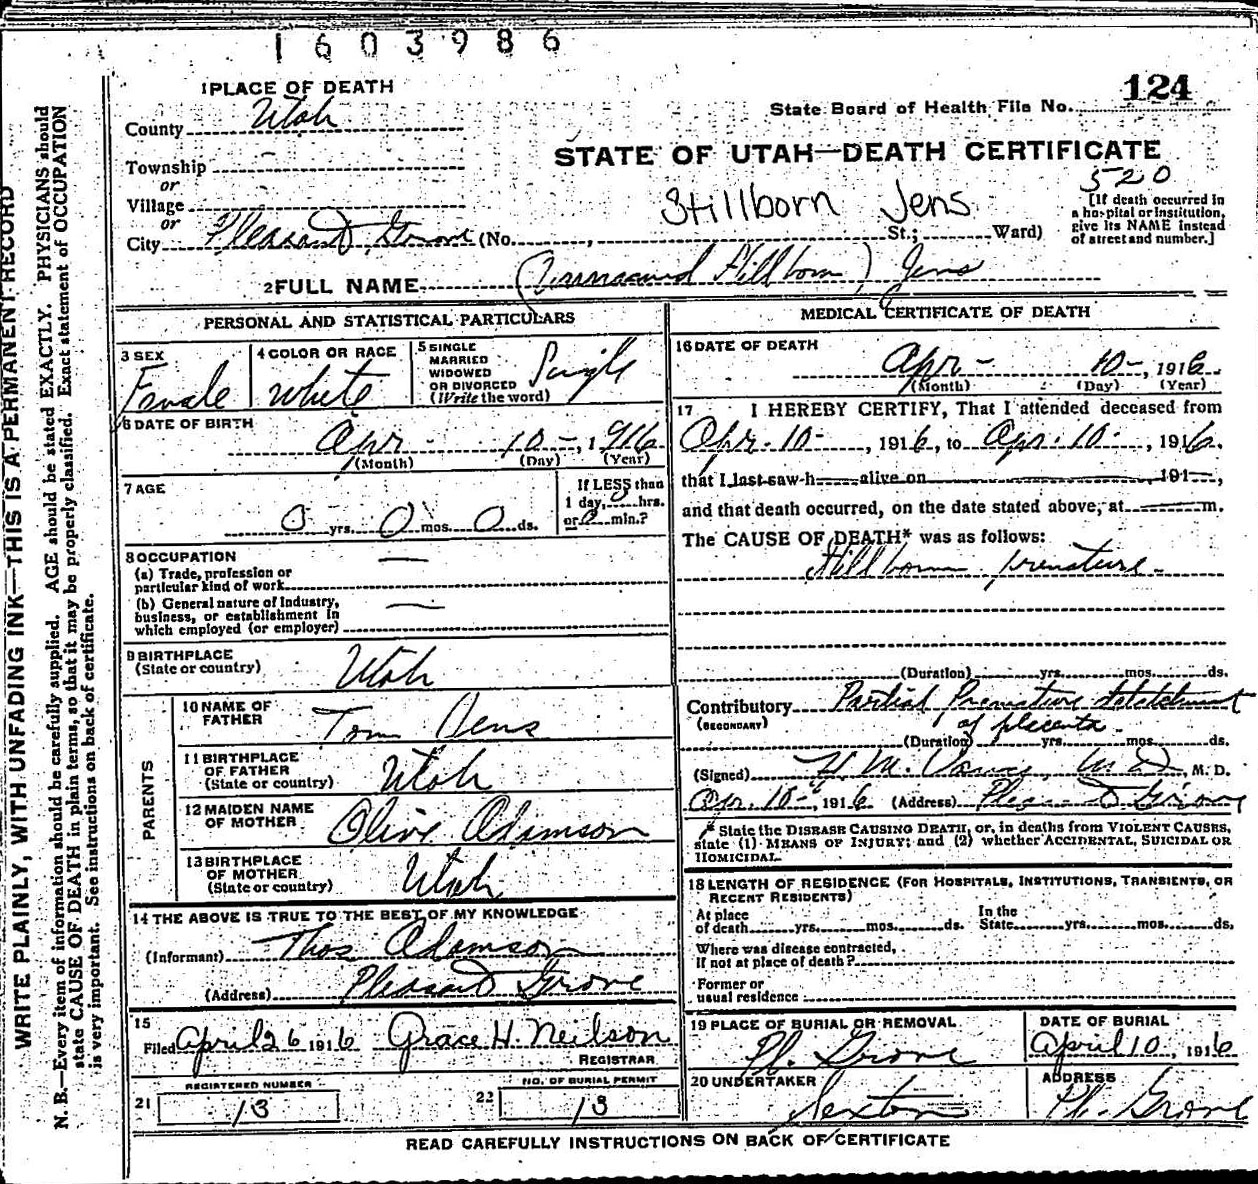 1603986
1 PLACE OF DEATH
124
State Board of Health File No.
County Utah
STATE OF UTAH—DEATH CERTIFICATE
Township
or
520
Village
Stillborn Jens
[If death occurred in
a hospital or institution,
give its NAME instead
of street and number.]
or
City Pleasant Grove (No. , St.; Ward)
2 FULL NAME (Unnamed Stillborn) Jens
PERSONAL AND STATISTICAL PARTICULARS
3 SEX
Female
4 COLOR OR RACE
White
5 SINGLE
MARRIED
WIDOWED
OR DIVORCED
(Write the word)
Single
6 DATE OF BIRTH
Apr - 10 -, 1916
(Month) (Day) (Year)
7 AGE
0 yrs. 0 mos. 0 ds.
If LESS than
1 day, 0 hrs.
or 0 min.?
8 OCCUPATION
(a) Trade, profession or
particular kind of work
(b) General nature of industry,
business, or establishment in
which employed (or employer)
9 BIRTHPLACE
(State or country)
Utah
PARENTS
10 NAME OF
FATHER
Tom Jens
11 BIRTHPLACE
OF FATHER
(State or country)
Utah
12 MAIDEN NAME
OF MOTHER
Olive Adamson
13 BIRTHPLACE
OF MOTHER
(State or country)
Utah
14 THE ABOVE IS TRUE TO THE BEST OF MY KNOWLEDGE
(Informant) Thos Adamson
(Address) Pleasant Grove
15
Filed April 26 1916 Grace H. Neilson
REGISTRAR
REGISTERED NUMBER
21 13
NO. OF BURIAL PERMIT
22 13
MEDICAL CERTIFICATE OF DEATH
16 DATE OF DEATH
Apr - 10 -, 1916
(Month) (Day) (Year)
17 I HEREBY CERTIFY, That I attended deceased from
Apr. 10 -, 1916, to Apr. 10 -, 1916.
that I last saw h alive on 191 ,
and that death occurred, on the date stated above, at m.
The CAUSE OF DEATH* was as follows:
Stillborn premature -
(Duration) yrs. mos. ds.
Contributory Partial Premature detatchment
(SECONDARY) of placenta.
(Duration) yrs. mos. ds.
(Signed) H. M. M D, M. D.
Apr. 10 -, 1916 (Address) Pleasant Grove
* State the DISEASE CAUSING DEATH, or, in deaths from VIOLENT CAUSES,
state (1) MEANS OF INJURY; and (2) whether ACCIDENTAL, SUICIDAL OR
HOMICIDAL.
18 LENGTH OF RESIDENCE (FOR HOSPITALS, INSTITUTIONS, TRANSIENTS, OR
RECENT RESIDENTS)
At place
of death yrs. mos. ds.
In the
State yrs. mos. ds.
Where was disease contracted,
if not at place of death?
Former or
usual residence
19 PLACE OF BURIAL OR REMOVAL
Pl. Grove
DATE OF BURIAL
April 10, 1916
20 UNDERTAKER
Sexton
ADDRESS
Pl. Grove
READ CAREFULLY INSTRUCTIONS ON BACK OF CERTIFICATE
WRITE PLAINLY, WITH UNFADING INK—THIS IS A PERMANENT RECORD
N. B.—Every item of information should be carefully supplied. AGE should be stated EXACTLY. PHYSICIANS should
state CAUSE OF DEATH in plain terms, so that it may be properly classified. Exact statement of OCCUPATION
is very important. See instructions on back of certificate.